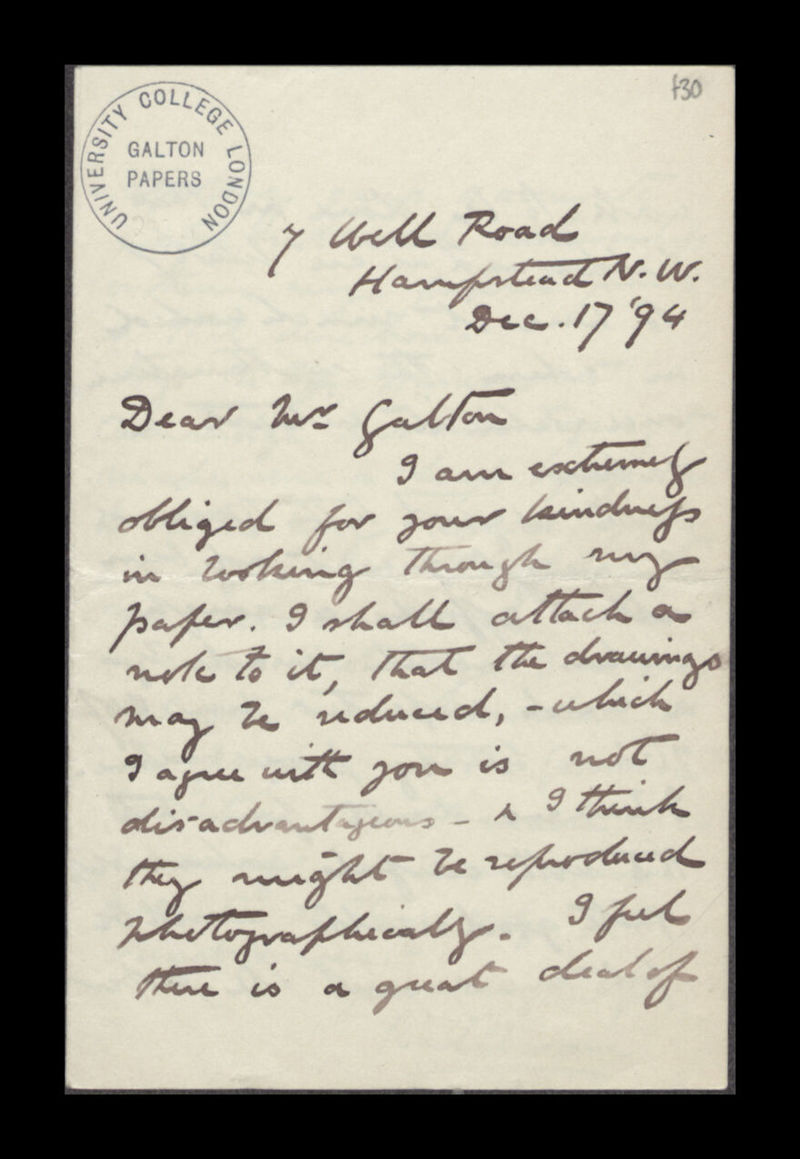 f30
UNIVERSITY COLLEGE LONDON
GALTON
PAPERS
7 Well Road
Hampstead N.W.
Dec. 17 '94
Dear Mr Galton
I am extremely
obliged for your kindness
in looking through my
paper. I shall attach a
note to it, that the drawings
may be reduced, - which
I agree with you is not
disadvantageous - & I think
they might be reproduced
photographically. I feel
there is a great deal of